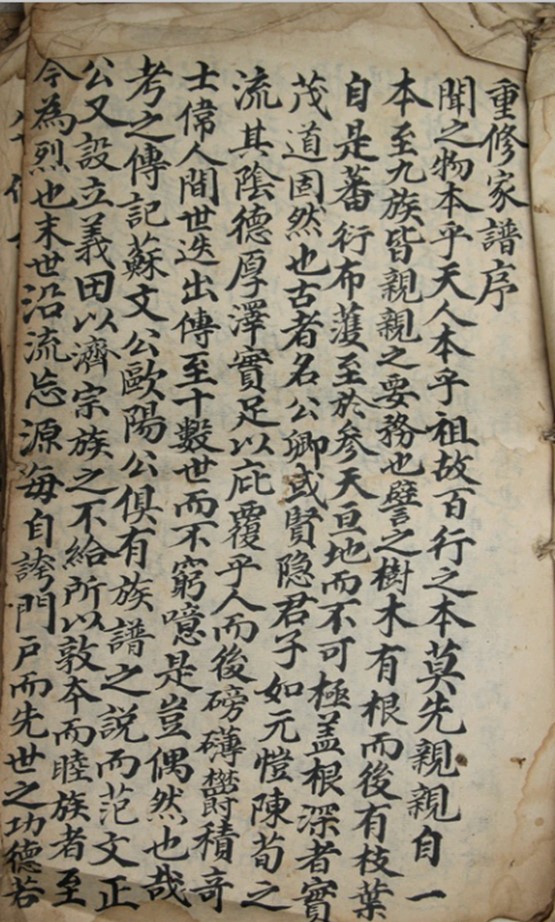 重修家譜序
聞之物本乎天人本乎祖故百行之本莫先親親自一
本至九族皆親親之要務也譬之樹木有根而後有枝葉
自是蕃衍布濩至於参天亘地而不可極盖根深者實
茂道固然也古者名公卿或賢隐君子如元愷陳荀之
流其陰德厚澤實足以庇覆乎人而後磅礴欝積奇
士偉人間世迭出傳至十數世而不窮噫是豈偶然也哉
考之傳記蘇文公歐陽公俱有族譜之説而范文正
公又設立義田以濟宗族之不給所以敦夲而睦族者至
今為烈也末世沿流忘源每自誇門戸而先世之功德若